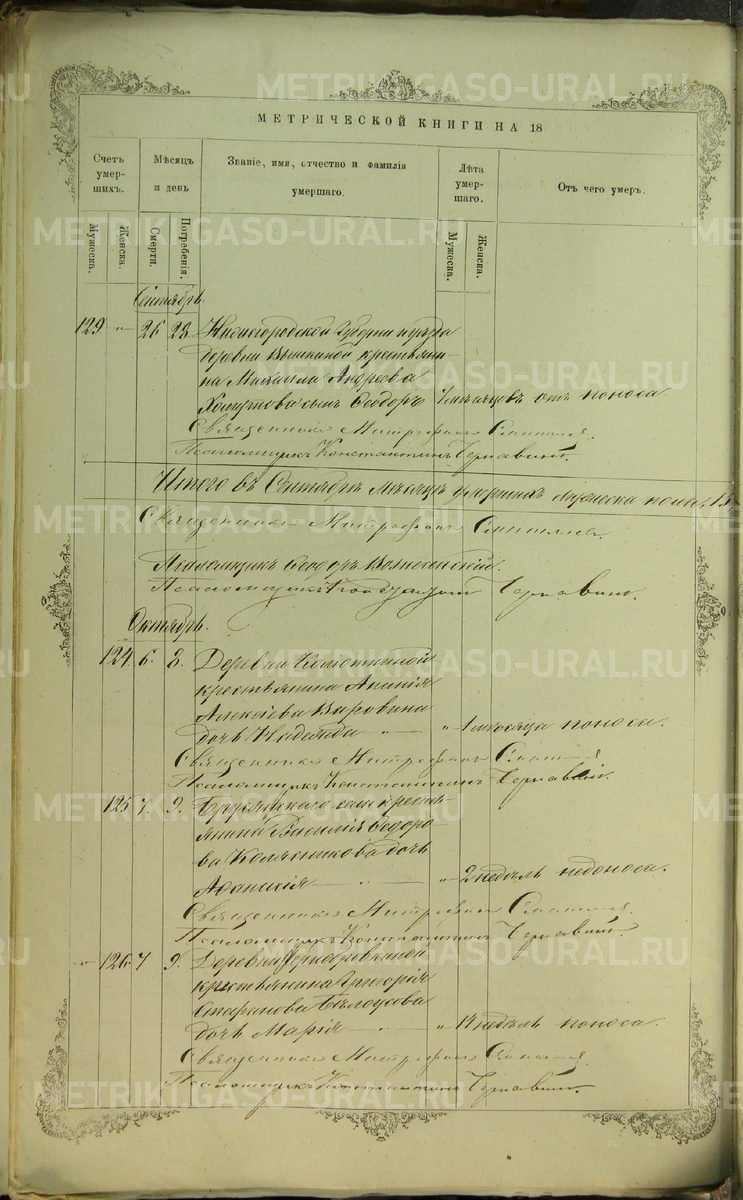 МЕТРИЧЕСКОЙ КНИГИ НА 18
Счетъ умерших.
Мѣсяцъ и день
Званіе, имя, отчество и фамилія умершаго.
Лѣта умершаго.
Отъ чего умеръ.
Мужеска.
Женска.
Смерти.
Погребенія.
Мужеска.
Женска.
Сентябрь
129 " 26 28 Нижегородской Губерніи и уѣзда
деревни крестьяни-
на Михаила Андреева
сынъ Ѳеодоръ мѣсяцовъ отъ поноса.
Священникъ Митрофанъ
Псаломщикъ Константинъ Чернавинъ.
Итого въ Сентябрѣ мѣсяцѣ умершихъ мужеска пола, 15
Священникъ Митрофанъ
Псаломщикъ Ѳеодоръ Вознесенскій.
Псаломщикъ Чернавинъ.
Октябрь.
124 6. 8. Деревни
крестьянина Ананія
Алексѣева
дочь Надежда " — " 1 мѣсяца поноса.
Священникъ Митрофанъ
Псаломщикъ Константинъ Чернавинъ.
125 7. 9. села кресть-
янина Василія Ѳедоро-
ва Колясникова дочь
" — " 2 недѣль недоноса.
Священникъ Митрофанъ
Псаломщикъ Константинъ Чернавинъ.
" 126 7 9. Деревни
крестьянина Григорія
Стефанова Бѣлоусова
дочь Марія " — " недѣль поноса.
Священникъ Митрофанъ
Псаломщикъ Константинъ Чернавинъ.
METRIKI.GASO-URAL.RU